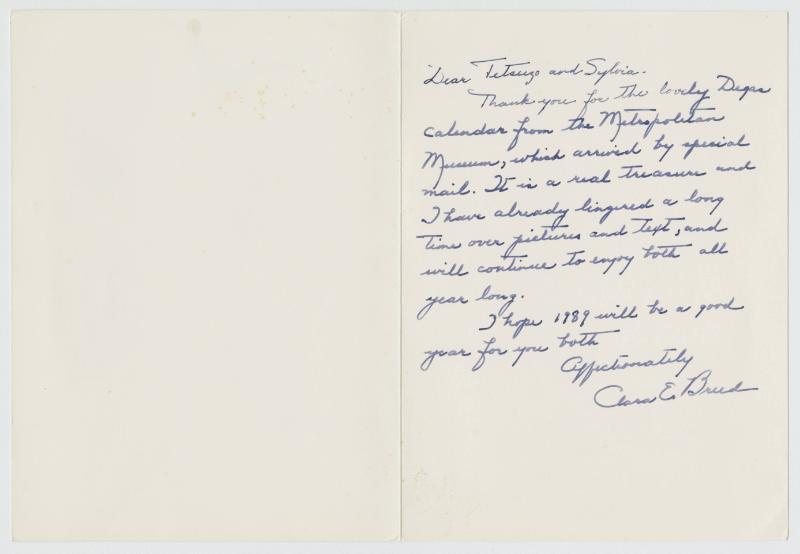 Dear Tetsuzo and Sylvia.
Thank you for the lovely Degas
calendar from the Metropolitan
Museum, which arrived by special
mail. It is a real treasure and
I have already lingered a long
time over pictures and text, and
will continue to enjoy both all
year long.
I hope 1989 will be a good
year for you both
Affectionately
Clara E. Breed